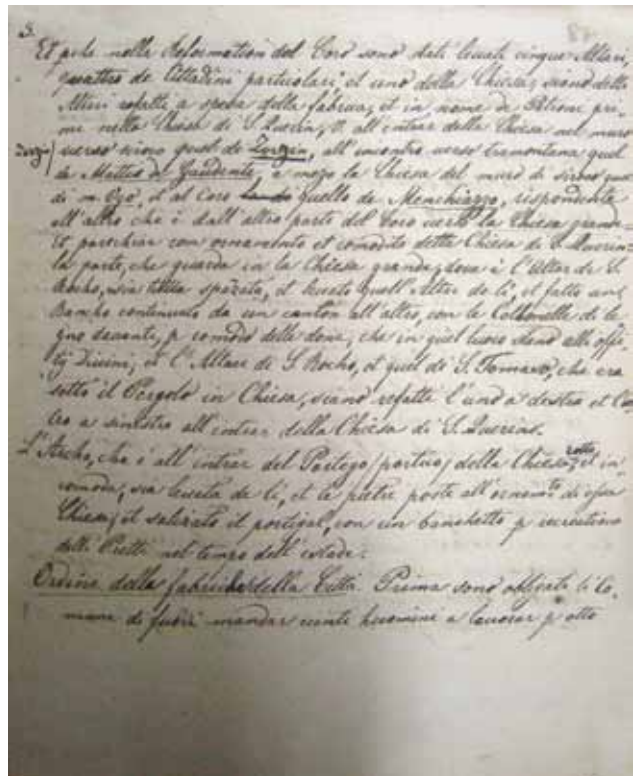 3.
Et perche nella Reformation del Coro sono stati levati cinque Altari,
quattro de Cittadini particolari, et uno della Chiesa, siano detti
Altari refatti a spesa della fabrica, et in nome de Patroni pri-
mi nella Chiesa di S. Quirin, all' intrar della Chiesa nel muro
verso quel de Zorzin, all' incontro verso tramontana quel
de Matteo de Gaudente, a mezo la Chiesa del muro di
di m. et al Coro quello de Menchiazzo, rispondente
all' altro che è dall' altra parte del Coro verso la Chiesa grande
Et parechiar con ornamento et comodità detta Chiesa de S. Quirin
la parte, che guarda in la Chiesa grande, dove è l' Altar de S.
Rocho, sia tutta et levato quell' Altar de lì, et fatto un
Bancho continuato da un canton all' altro, con le Collonelle de le-
gno davante, p comodo delle done, che in quel luoco stano alli offi-
tij Divini, et l' Altare de S. Rocho, et quel di S. Tomaso, che era
sotto il Pergolo in Chiesa, siano refatti l' uno a destra et l'
tro a sinistra all' intrar della Chiesa di S. Quirin.
L' Archo, che è all' intrar del Portego (portico) della Chiesa rotto, et in-
comodo, sia levato de lì, et le pietre poste all' ornamto di essa
Chiesa, et salizato il portigal, con un banchetto p recreatione
delli Pretti nel tempo dell' estade.
Ordine della fabrica della Città. Prima sono obligati li Co-
muni di fuori mandar vinti huomini a lavorar p otto